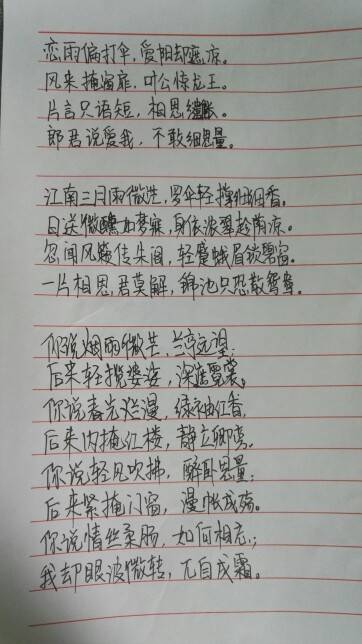 恋雨偏打伞，爱阳却遮凉。
风来掩窗扉，叶公惊龙王。
片言只语短，相思缱绻长。
郎君说爱我，不敢细思量。
江南三月雨微茫，罗伞轻撑细细香。
日送微醺如梦寐，身依浓翠趁荫凉。
忽闻风籁传朱阁，轻蹙蛾眉锁碧窗。
一片相思君莫解，锦池只恐散鸳鸯。
你说烟雨微芒，兰亭远望；
后来轻揽婆娑，深遮霓裳。
你说春光烂漫，绿袖红香，
后来内掩红楼，静立卿旁。
你说轻风吹拂，醉卧思量；
后来紧掩门窗，漫帐成殇。
你说情丝柔肠，如何相忘；
我却眼波微转，兀自成霜。